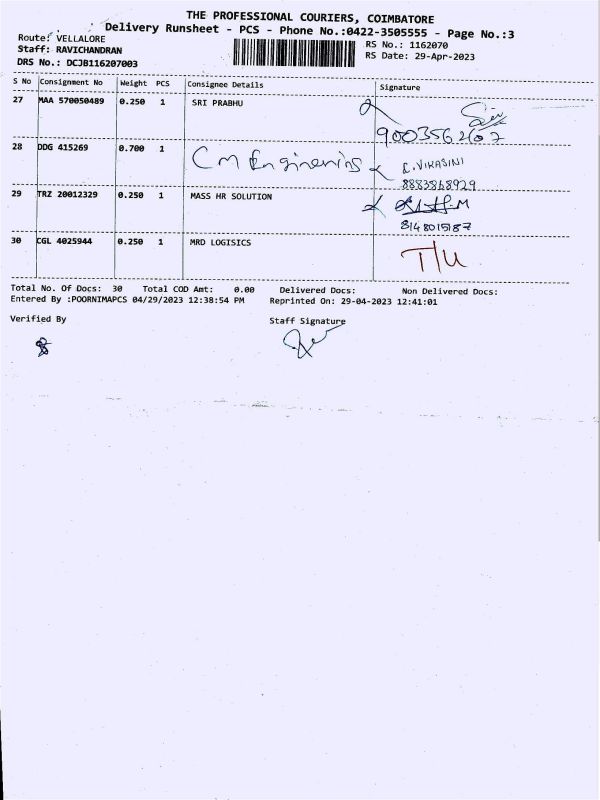 THE PROFESSIONAL COURIERS, COIMBATORE
Delivery Runsheet - PCS - Phone No.:0422-3505555 - Page No.:3
Route: VELLALORE
RS No.: 1162070
Staff: RAVICHANDRAN
RS Date: 29-Apr-2023
DRS No.: DCJB116207003
S No Consignment No Weight PCS Consignee Details Signature
27 MAA 570050489 0.250 1 SRI PRABHU
9003562607
28 DDG 415269 0.700 1 CM Enginering E.VIKASINI
8883868929
29 TRZ 20012329 0.250 1 MASS HR SOLUTION
8148015187
30 CGL 4025944 0.250 1 MRD LOGISICS T/U
Total No. Of Docs: 30 Total COD Amt: 0.00 Delivered Docs: Non Delivered Docs:
Entered By :POORNIMAPCS 04/29/2023 12:38:54 PM Reprinted On: 29-04-2023 12:41:01
Verified By Staff Signature